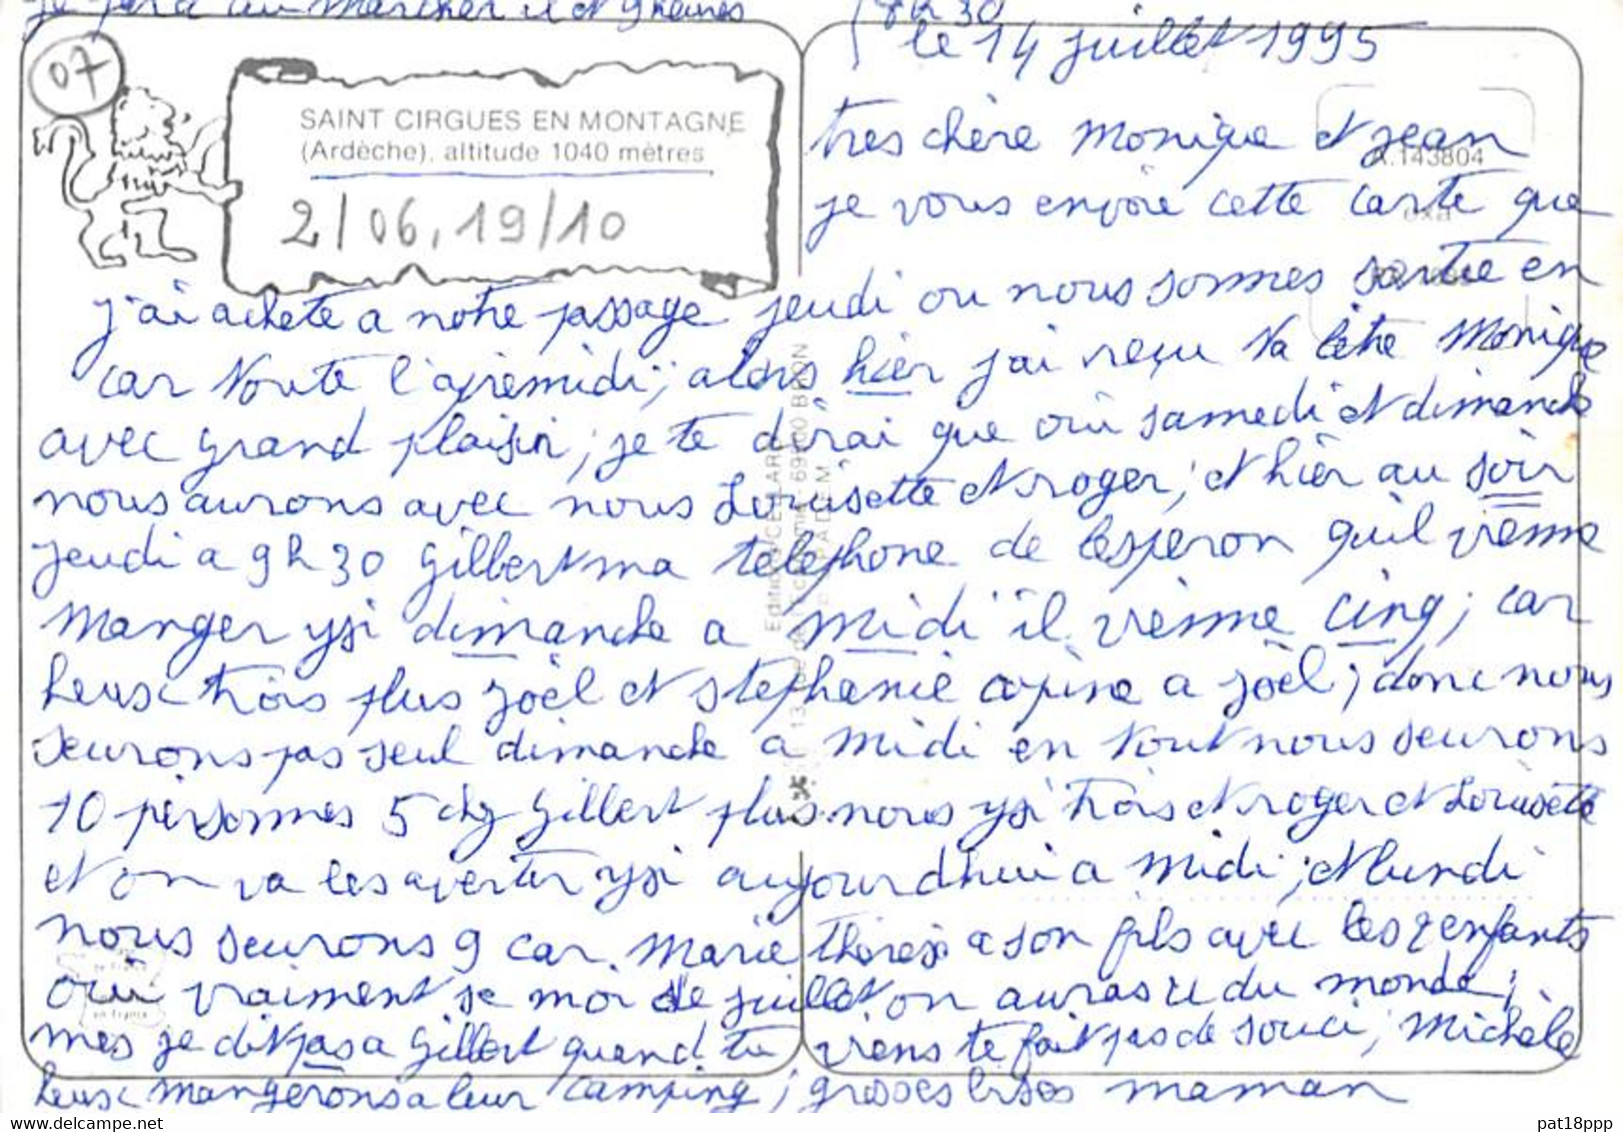 je per a au marcher il et 9 heures
8 h 30
le 14 juillet 1995
07
SAINT CIRGUES EN MONTAGNE
(Ardèche), altitude 1040 mètres
2/06, 19/10
A.143804
exa
tres chère Monique et jean
je vous envoie cette carte que
j'ai achete a notre passage jeudi ou nous sommes sortie en
car toute l'apremidi; alors hier j'ai reçu ta lètre Monique
avec grand plaisir; je te dirai que oui samedi et dimanche
nous aurons avec nous Louisette et roger; et hier au soir
jeudi a 9 h 30 Gilbert ma telephone de lesperon quil vienne
manger ysi dimanche a midi il vienne cinq; car
heux trois plus joël et stephanie copine a joël; donc nous
seurons pas seul dimanche a midi en tout nous seurons
10 personnes 5 chez Gilbert plus nous ysi trois et roger et Louisette
et on va les avertir ysi aujourd'hui a midi; et lundi
nous seurons 9 car Marie therese a son fils avec les 2 enfants
oui vraiment se moi de juillet on auras eu du monde;
mes je dit pas a Gilbert quand tu viens te fait pas de souci; Michèle
heux mangerons a leur camping; grosses bises maman
Editions CELLARD
69500 BRON
pat18ppp